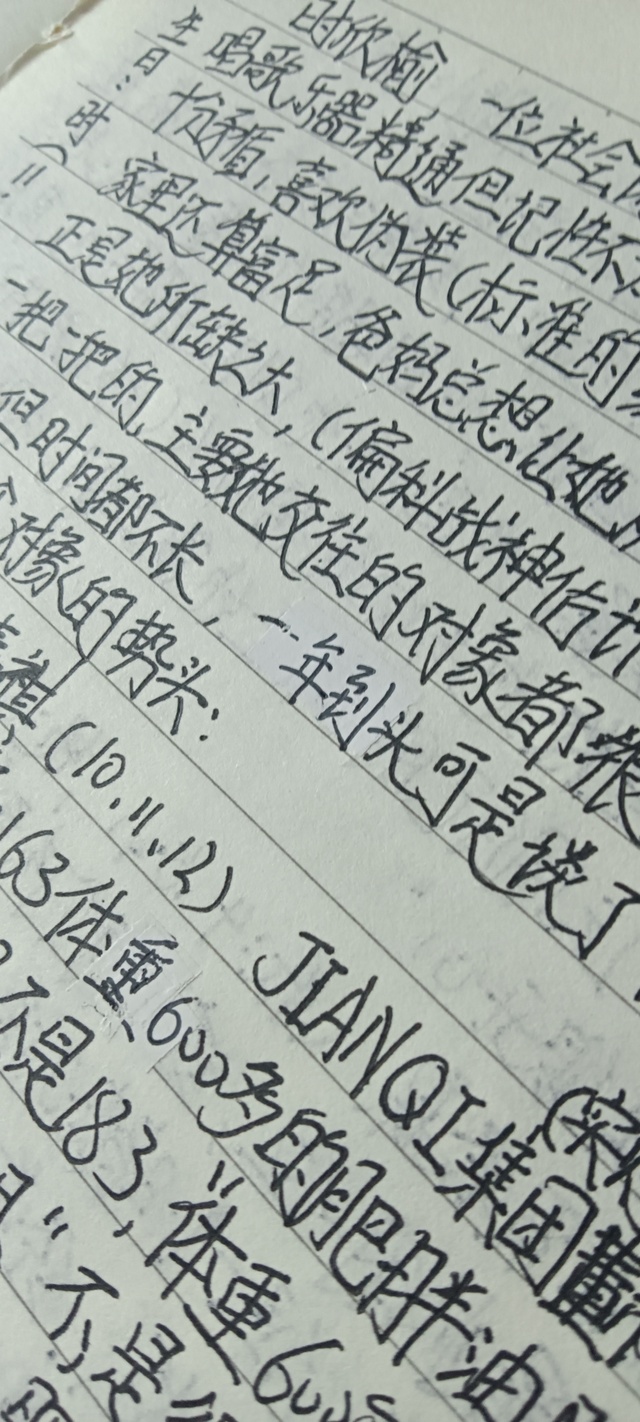 时欣榆,一位社会
唱歌乐器精通但记性不
喜欢伪装(标准的
家里还算富足,爸妈总想让她
正是她所缺之大,(偏科战神估计
一把一把的,主要她交往的对象都很
但时间都不长,一年到头可是谈了
对象的势头:
(10.11.12) JIANQI集团董
163/体重600多的肥胖油
不是183,体重600
不是
生日:
时